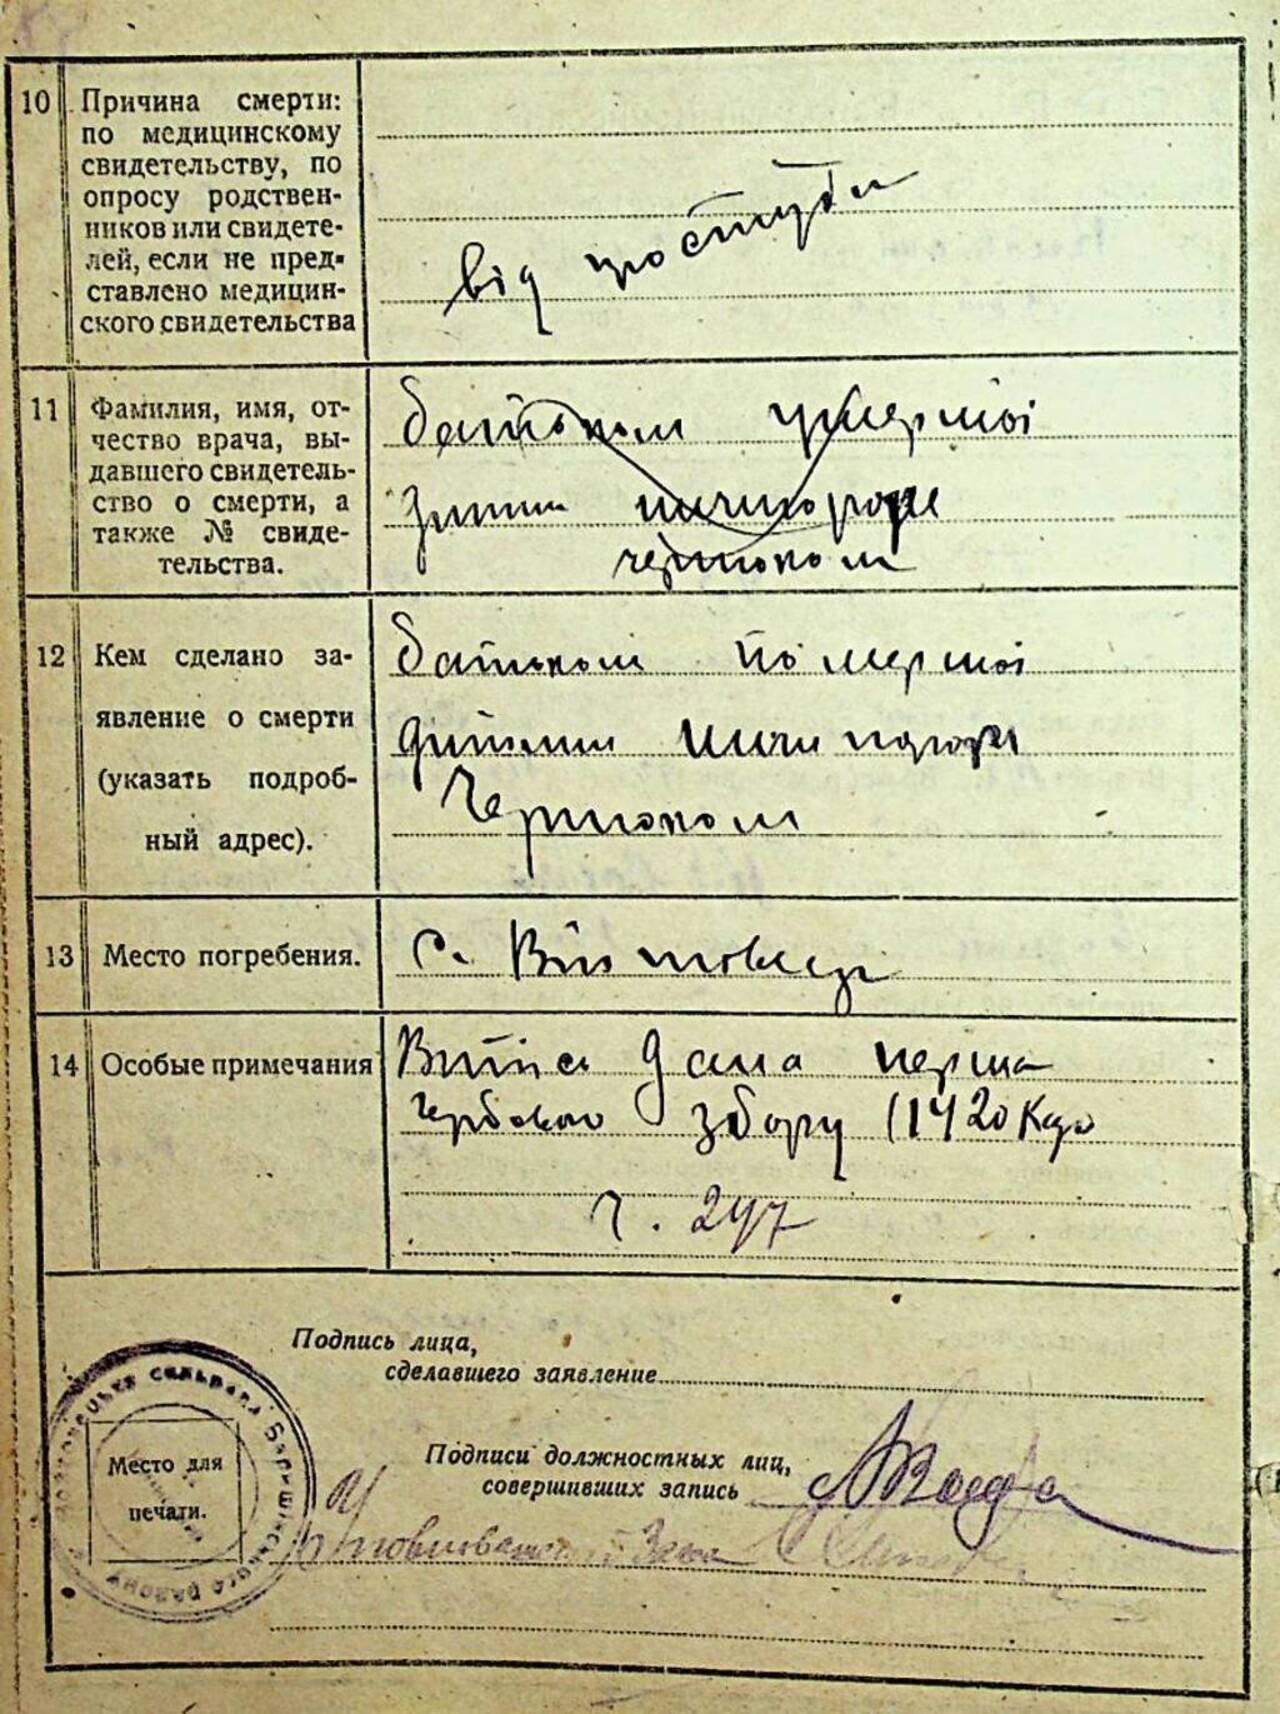 10 Причина смерти:
по медицинскому
свидетельству, по
опросу родствен-
ников или свидете-
лей, если не пред-
ставлено медицин-
ского свидетельства
від простуди
11 Фамилия, имя, от-
чество врача, вы-
давшего свидетель-
ство о смерти, а
также № свиде-
тельства.
батьком умершої
12 Кем сделано за-
явление о смерти
(указать подроб-
ный адрес).
батьком помершої
дитини
13 Место погребения.
с.
14 Особые примечания
Витяг дана перша
гербового збору (1420 Крб
Ч. 247
Подпись лица,
сделавшего заявление
Подписи должностных лиц,
совершивших запись
Место для
печати.